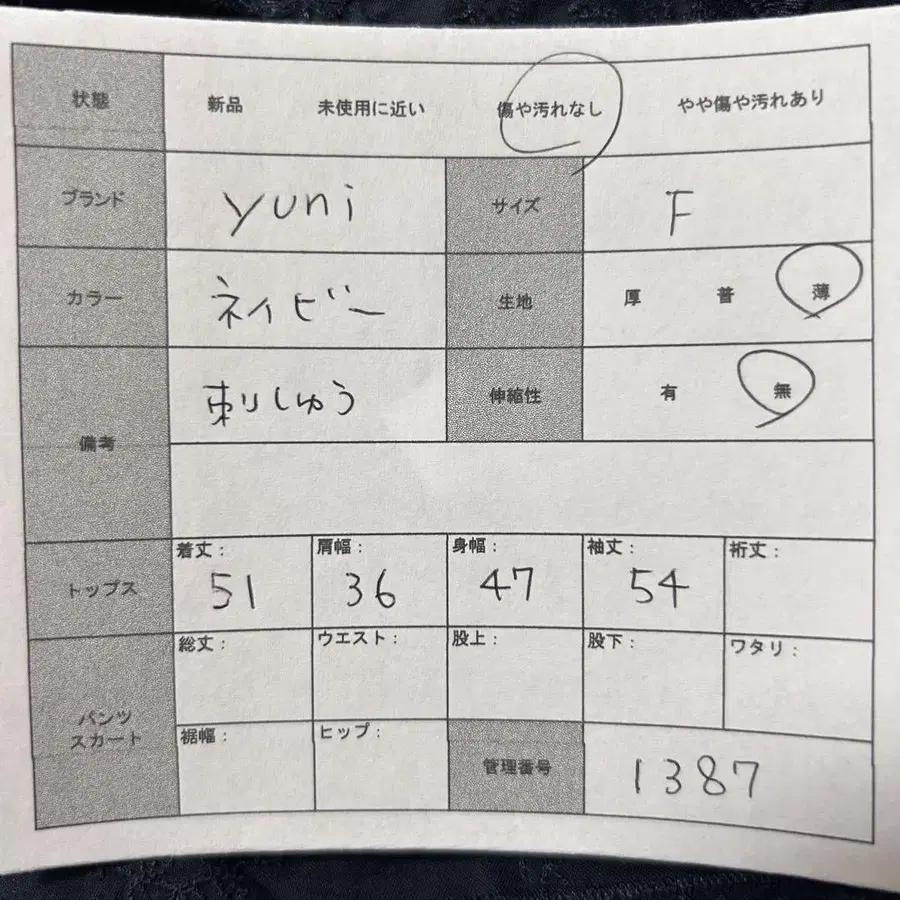 状態 新品 未使用に近い 傷や汚れなし やや傷や汚れあり
ブランド yuni サイズ F
カラー ネイビー 生地 厚 普 薄
備考 刺しゅう 伸縮性 有 無
トップス 着丈： 51 肩幅： 36 身幅： 47 袖丈： 54 裄丈：
パンツ スカート 総丈： ウエスト： 股上： 股下： ワタリ：
裾幅： ヒップ： 管理番号 1387